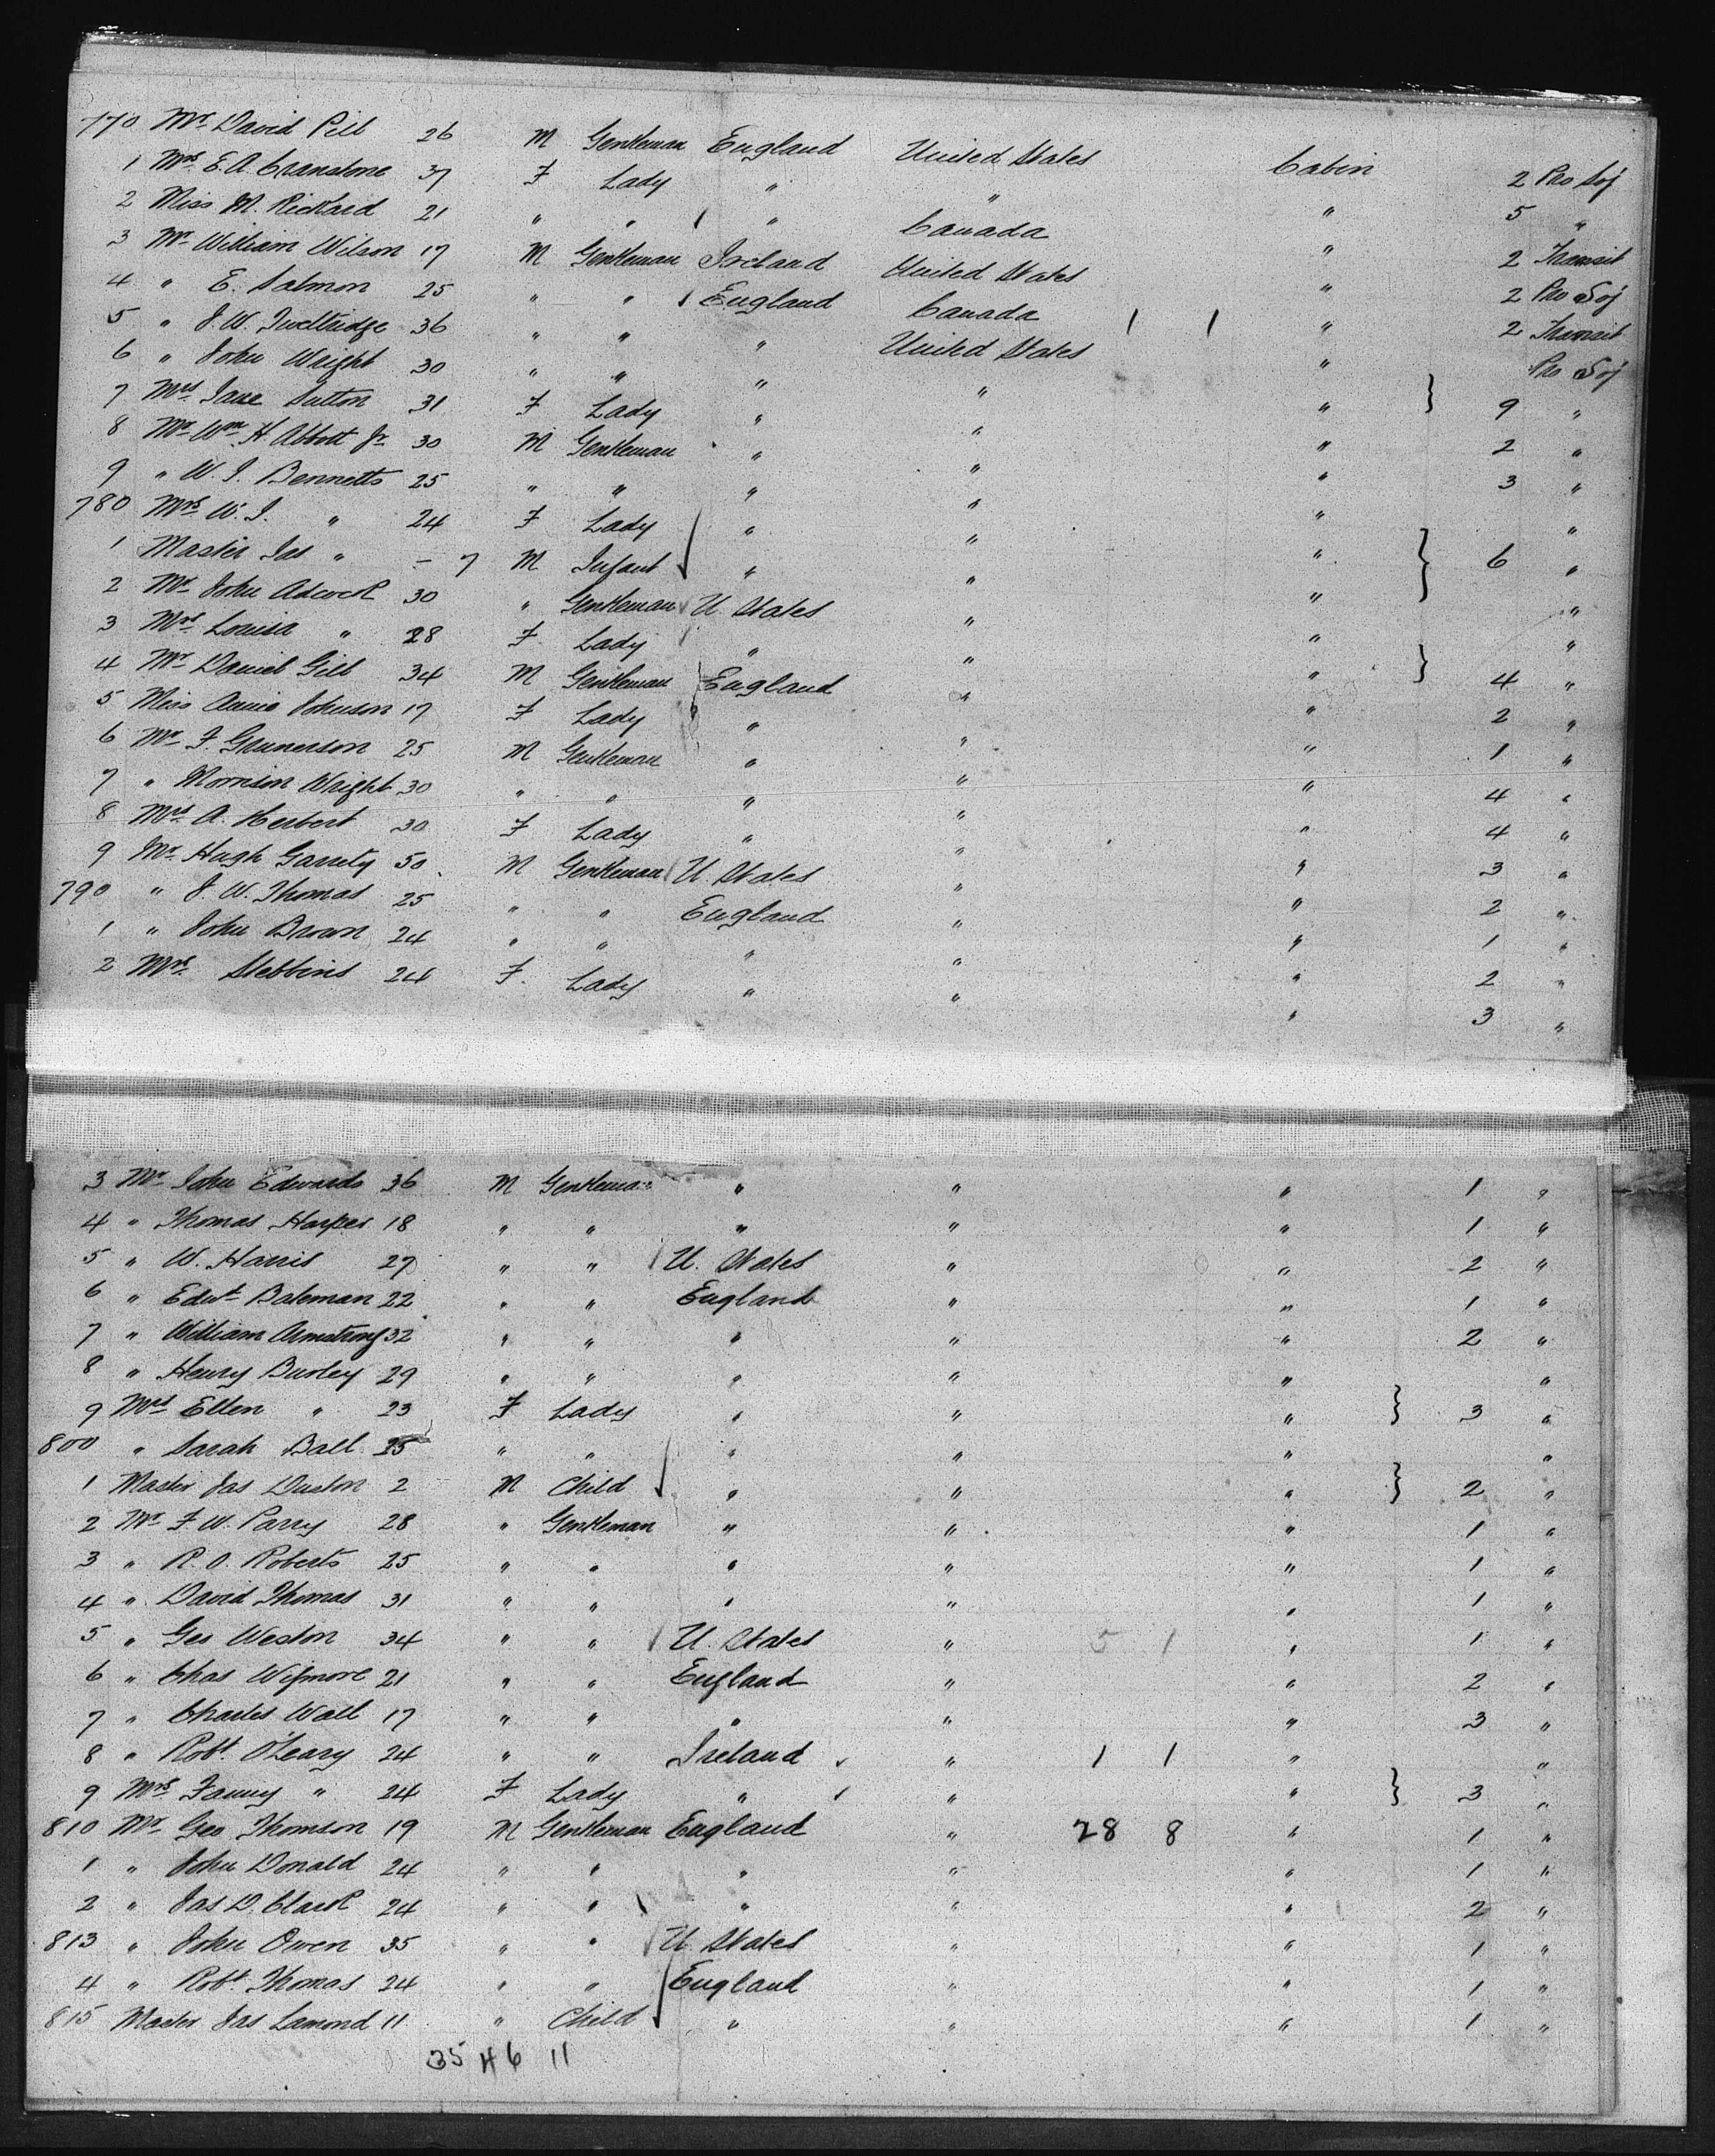 770 Mr David Pill 26 M Gentleman England United States Cabin 2 Pro Soj
1 Mrs E. A. Cranstone 37 F Lady " " " 5 "
2 Miss M. Rickard 21 " " " Canada " 2 Transit
3 Mr William Wilson 17 M Gentleman Ireland United States " 2 Pro Soj
4 " E. Salmon 25 " " England Canada 1 1 " 2 Transit
5 " J. W. 36 " " " United States " Pro Soj
6 " John Wright 30 " " " " " } 9 "
7 Mrs Jane Sutton 31 F Lady " " " 2 "
8 Mr Wm H. Abbott Jr 30 M Gentleman " " " 3 "
9 " W. J. Bennetts 25 " " " " " "
780 Mrs W. J. " 24 F Lady " " " } 6 "
1 Master Jas " – 7 M Infant " " " "
2 Mr John Adcock 30 " Gentleman U. States " " "
3 Mrs Louisa " 28 F Lady " " " } 4 "
4 Mr Daniel Gill 34 M Gentleman England " " 2 "
5 Miss Annie Johnson 17 F Lady " " " 1 "
6 Mr F. Grunerson 25 M Gentleman " " " 4 "
7 " Morrison Wright 30 " " " " " 4 "
8 Mrs A. Herbert 30 F Lady " " " 3 "
9 Mr Hugh Garrety 50 M Gentleman U. States " " 2 "
790 " J. W. Thomas 25 " " England " " 1 "
1 " John Brown 24 " " " " " 2 "
2 Mrs Stebbins 24 F. Lady " " " 3 "
3 Mr John Edwards 36 M Gentleman " " " 1 "
4 " Thomas Harper 18 " " " " " 1 "
5 " W. Harris 27 " " U. States " " 2 "
6 " Edwd Bateman 22 " " England " " 1 "
7 " William Armstrong 32 " " " " " 2 "
8 " Henry Burley 29 " " " " " "
9 Mrs Ellen " 23 F Lady " " " } 3 "
800 " Sarah Ball 25 " " " " " "
1 Master Jas Duston 2 M Child " " " } 2 "
2 Mr F. W. Parry 28 " Gentleman " " " 1 "
3 " R. O. Roberts 25 " " " " " 1 "
4 " David Thomas 31 " " " " " 1 "
5 " Geo Weston 34 " " U. States " 5 1 " 1 "
6 " Chas Wigmore 21 " " England " " 2 "
7 " Charles Wall 17 " " " " " 3 "
8 " Robt O'Leary 24 " " Ireland " 1 1 " "
9 Mrs Fanny " 24 F Lady " " " } 3 "
810 Mr Geo Thomson 19 M Gentleman England " 28 8 " 1 "
1 " John Donald 24 " " " " " 1 "
2 " Jas D. Clark 24 " " " " " 2 "
813 " John Owen 35 " " U. States " " 1 "
4 " Robt Thomas 24 " " England " " 1 "
815 Master Jas Lamond 11 " Child " " " 1 "
35 46 11